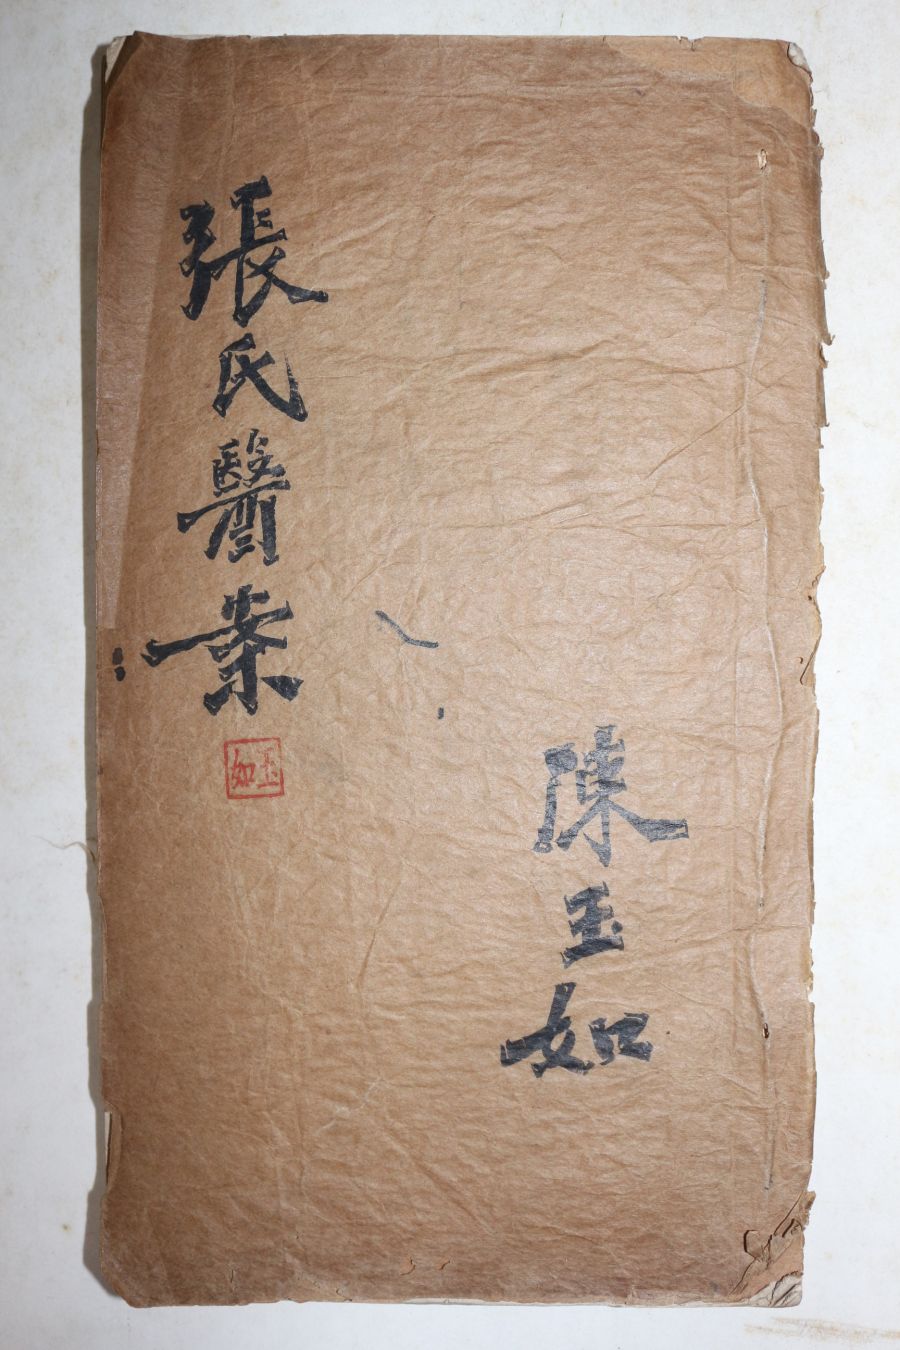 張氏醫案
玉如
陳玉如